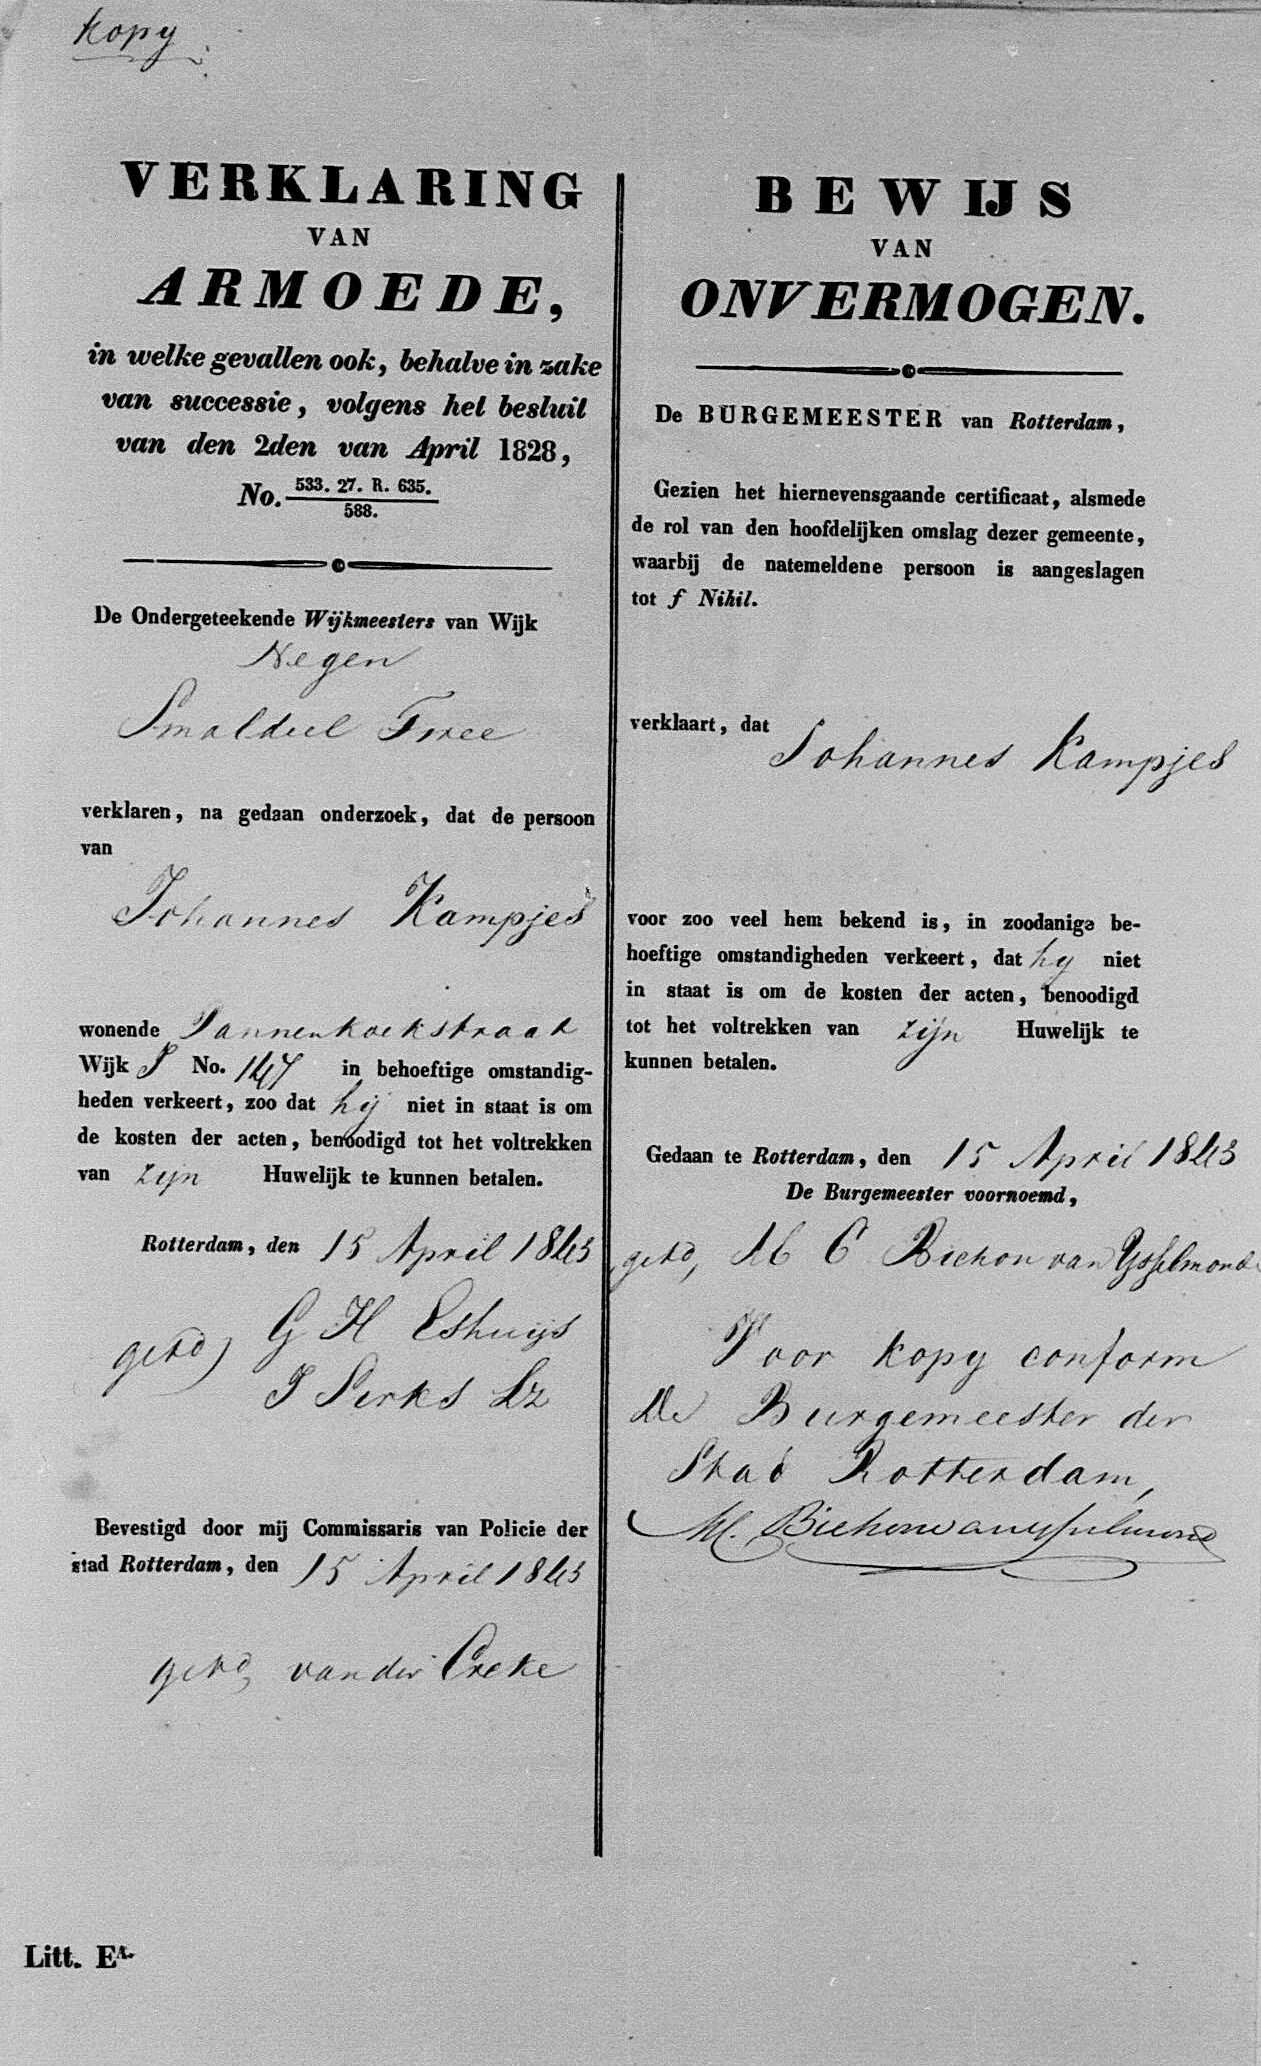 kopy
VERKLARING
VAN
ARMOEDE,
in welke gevallen ook, behalve in zake
van successie, volgens het besluit
van den 2den van April 1828,
No. 533. 27. R. 635.
588.
De Ondergeteekende Wijkmeesters van Wijk
Negen
Smaldeel Twee
verklaren, na gedaan onderzoek, dat de persoon
van
Johannes Kampjes
wonende Pannenkoekstraat
Wijk No. 147 in behoeftige omstandig-
heden verkeert, zoo dat hij niet in staat is om
de kosten der acten, benoodigd tot het voltrekken
van zijn Huwelijk te kunnen betalen.
Rotterdam, den 15 April 1843
getd) G H Eshuijs
J Serks Lz
Bevestigd door mij Commissaris van Policie der
stad Rotterdam, den 15 April 1843
getd, van der
Litt. EA.
BEWIJS
VAN
ONVERMOGEN.
De BURGEMEESTER van Rotterdam,
Gezien het hiernevensgaande certificaat, alsmede
de rol van den hoofdelijken omslag dezer gemeente,
waarbij de natemeldene persoon is aangeslagen
tot f Nihil.
verklaart, dat Johannes Kampjes
voor zoo veel hem bekend is, in zoodanige be-
hoeftige omstandigheden verkeert, dat hy niet
in staat is om de kosten der acten, benoodigd
tot het voltrekken van zijn Huwelijk te
kunnen betalen.
Gedaan te Rotterdam, den 15 April 1843
De Burgemeester voornoemd,
getd, M C Bichon van Ysselmonde
Voor kopy conform
De Burgemeester der
Stad Rotterdam,
M. Bichon van Ysselmonde